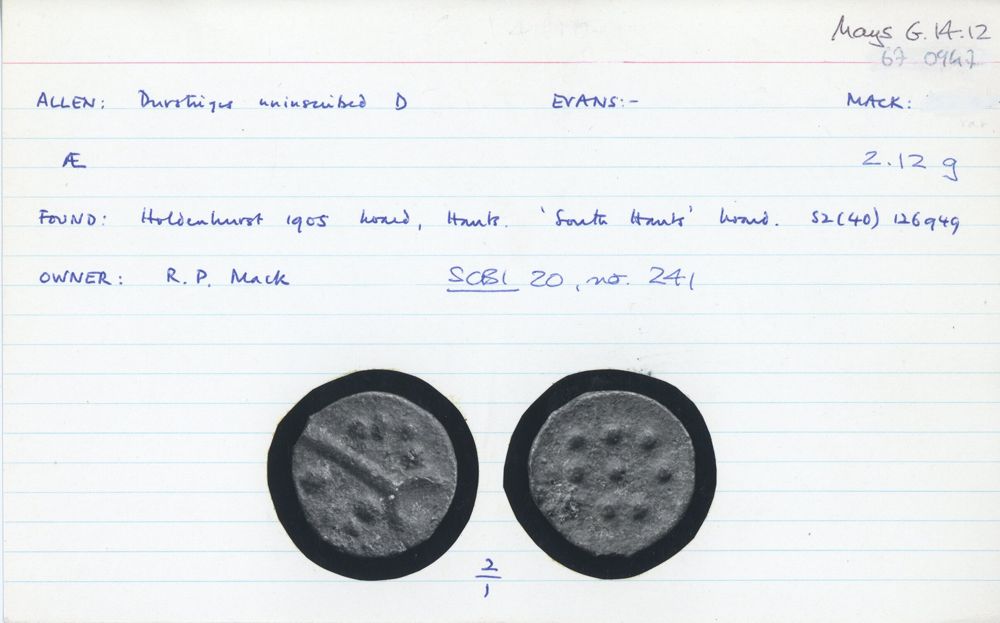 Mays G.14.12
67 0947
ALLEN: Durotriges uninscribed D EVANS:- MACK:
var.
Æ 2.12 g
FOUND: Holdenhurst 1905 hoard, Hants. 'South Hants' hoard. SZ(40) 126949
OWNER: R. P. Mack SCBI 20, no. 241
2
1